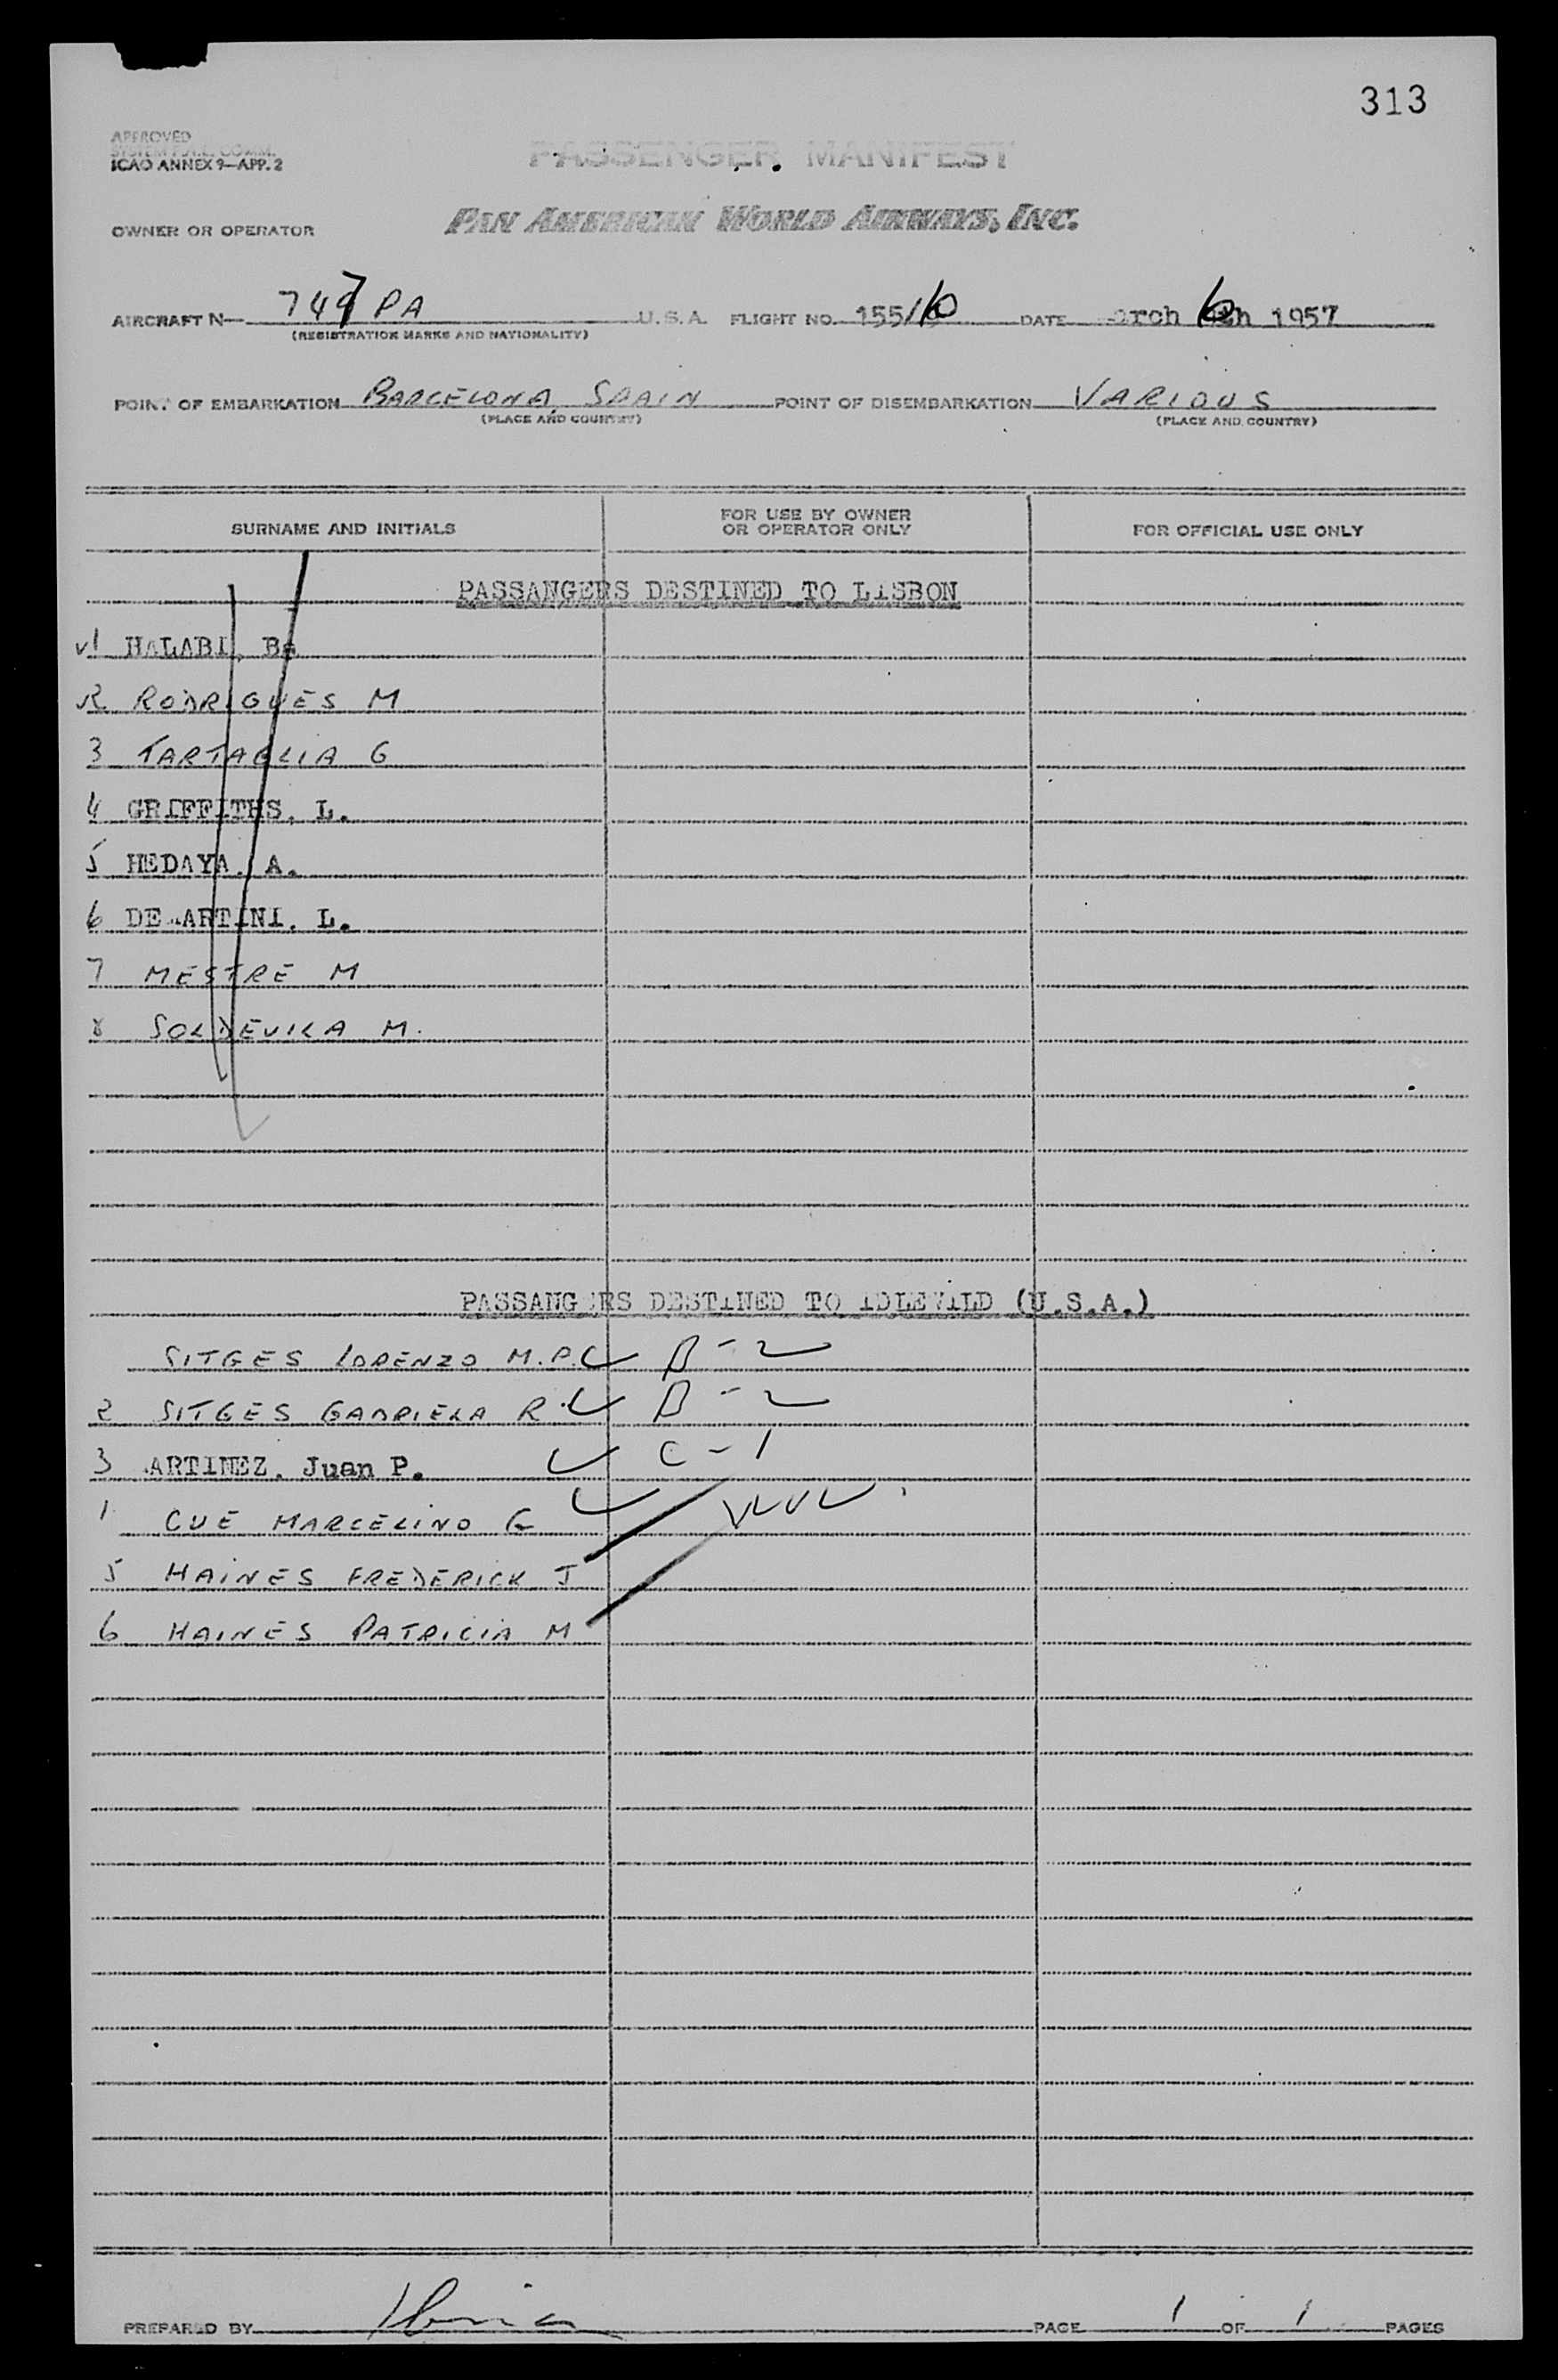 313
APPROVED
SYSTEM F.H.L. COMM.
ICAO ANNEX 9—APP. 2
PASSENGER MANIFEST
OWNER OR OPERATOR PAN AMERICAN WORLD AIRWAYS, INC.
AIRCRAFT N— 747 PA U.S.A. FLIGHT NO. 155/6 DATE arch 6th 1957
(REGISTRATION MARKS AND NATIONALITY)
POINT OF EMBARKATION BARCELONA, SPAIN POINT OF DISEMBARKATION VARIOUS
(PLACE AND COUNTRY) (PLACE AND COUNTRY)
SURNAME AND INITIALS FOR USE BY OWNER OR OPERATOR ONLY FOR OFFICIAL USE ONLY
PASSANGERS DESTINED TO LISBON
1 HALABI, B.
2 RODRIGUES M
3 TARTAGLIA G
4 GRIFFITHS, L.
5 HEDAYA, A.
6 DEMARTINI, L.
7 MESTRE M
8 SOLDEVILA M.
PASSANGERS DESTINED TO IDLEWILD (U.S.A.)
SITGES LORENZO M.P. B-2
2 SITGES GABRIELA R. B-2
3 ARTINEZ, Juan P. C-1
1 CUE MARCELINO G
5 HAINES FREDERICK J
6 HAINES PATRICIA M
PREPARED BY PAGE 1 OF 1 PAGES